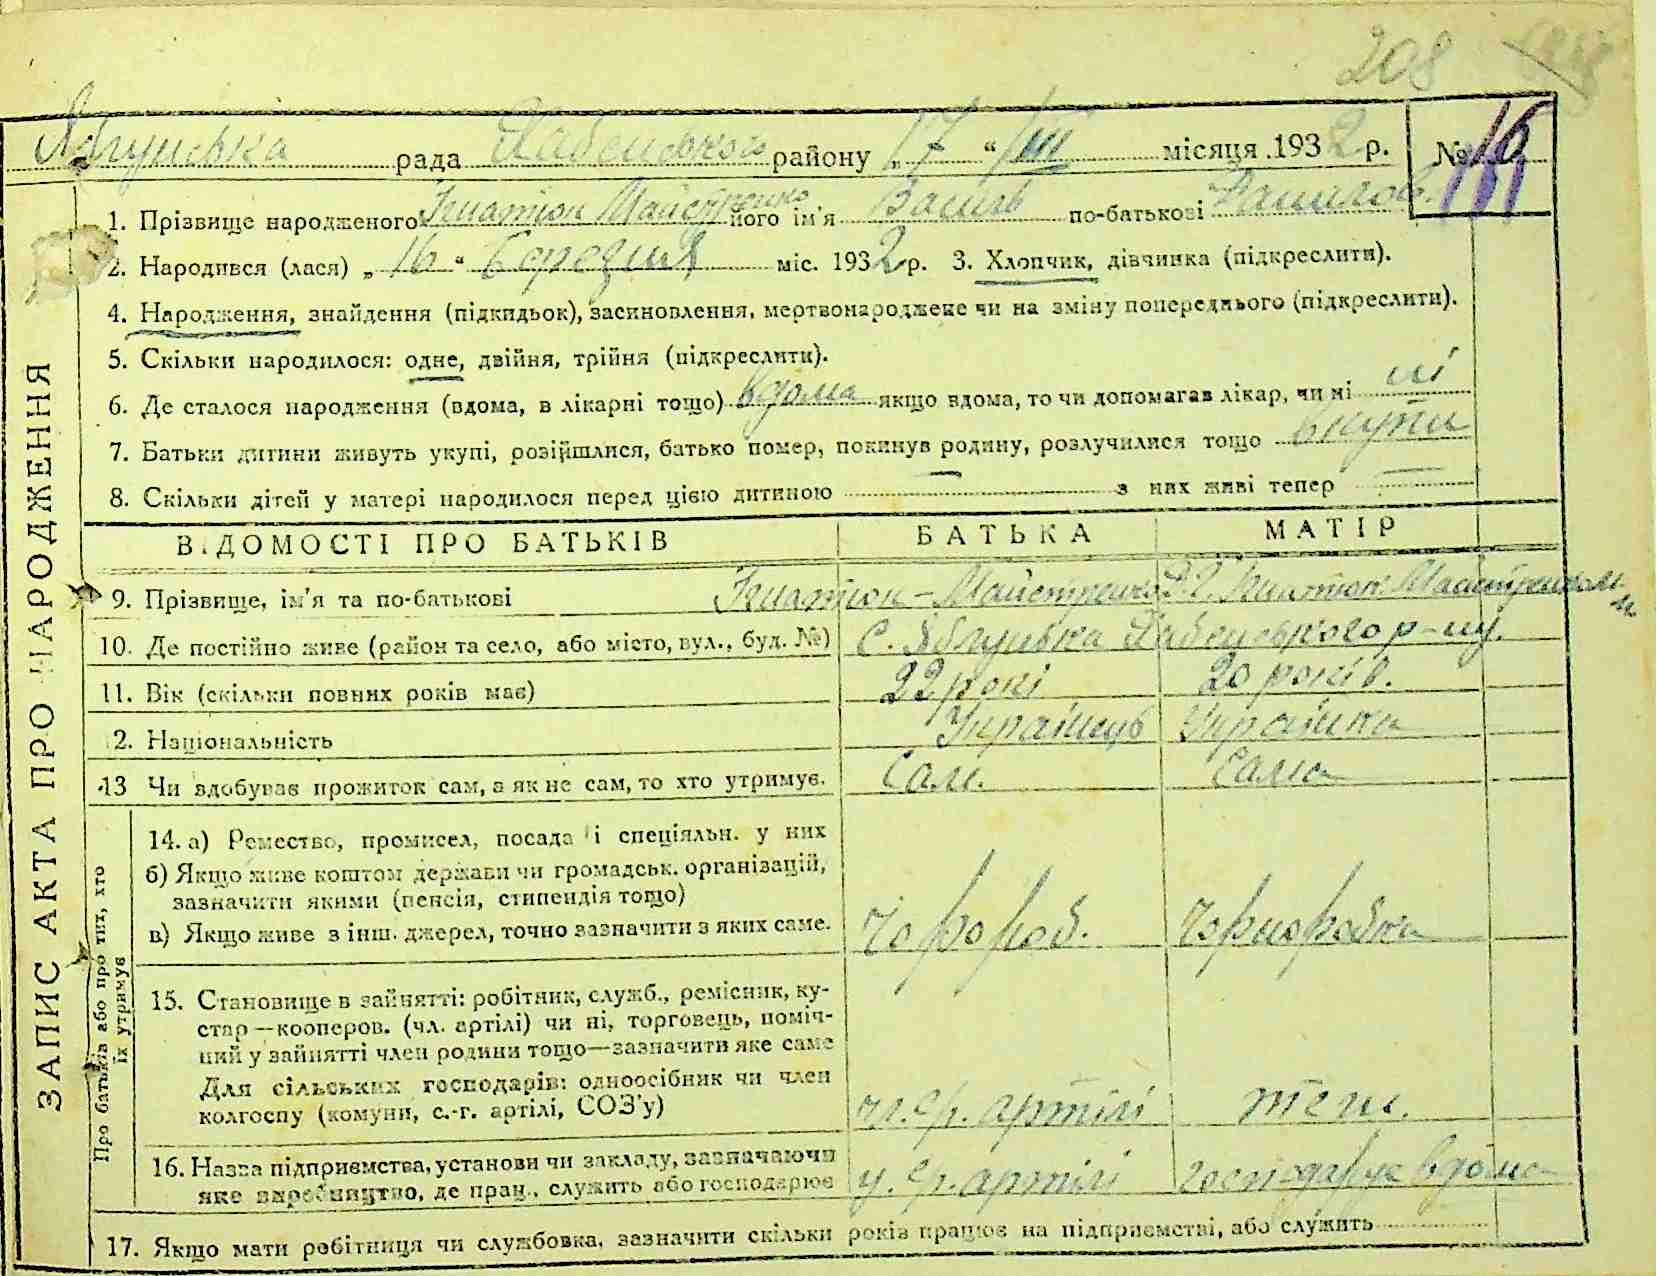 208
Яблунівка рада Бабанського району „17“ III місяця 1932 р. № 16
1. Прізвище народженого Гнатюк Майстренко його ім'я Василь по-батькові Данилов.
2. Народився (лася) „16“ Березня міс. 1932 р. 3. Хлопчик, дівчинка (підкреслити).
4. Народження, знайдення (підкидьок), засиновлення, мертвонароджене чи на зміну попереднього (підкреслити).
5. Скільки народилося: одне, двійня, трійня (підкреслити).
6. Де сталося народження (вдома, в лікарні тощо) вдома якщо вдома, то чи допомагав лікар, чи ні ні
7. Батьки дитини живуть укупі, розійшлися, батько помер, покинув родину, розлучилися тощо вкупи
8. Скільки дітей у матері народилося перед цією дитиною — з них живі тепер —
ВІДОМОСТІ ПРО БАТЬКІВ БАТЬКА МАТІР
9. Прізвище, ім'я та по-батькові Гнатюк – Майстренко Гнатюк Майстренко
10. Де постійно живе (район та село, або місто, вул., буд. №) С. Яблунівка р-ну.
11. Вік (скільки повних років має) 22 рокі 20 років.
12. Національність Українець Українка
13 Чи здобуває прожиток сам, а як не сам, то хто утримує. Сам. Сама
14. а) Ремество, промисел, посада і спеціяльн. у них
б) Якщо живе коштом держави чи громадськ. організацій,
зазначити якими (пенсія, стипендія тощо)
в) Якщо живе з інш. джерел, точно зазначити з яких саме. Чоророб. Чорноробка
15. Становище в зайнятті: робітник, служб., ремісник, ку-
стар—кооперов. (чл. артілі) чи ні, торговець, поміч-
ний у зайнятті член родини тощо—зазначити яке саме
Для сільських господарів: одноосібник чи член
колгоспу (комуни, с.-г. артілі, СОЗ'у) чл. ср. артілі теж.
16. Назва підприємства, установи чи закладу, зазначаючи
яке виробництво, де прац., служить або господарює у. ср. артілі господарює вдома
17. Якщо мати робітниця чи службовка, зазначити скільки років працює на підприємстві, або служить
ЗАПИС АКТА ПРО НАРОДЖЕННЯ
Про батьків або про тих, хто
їх утримує